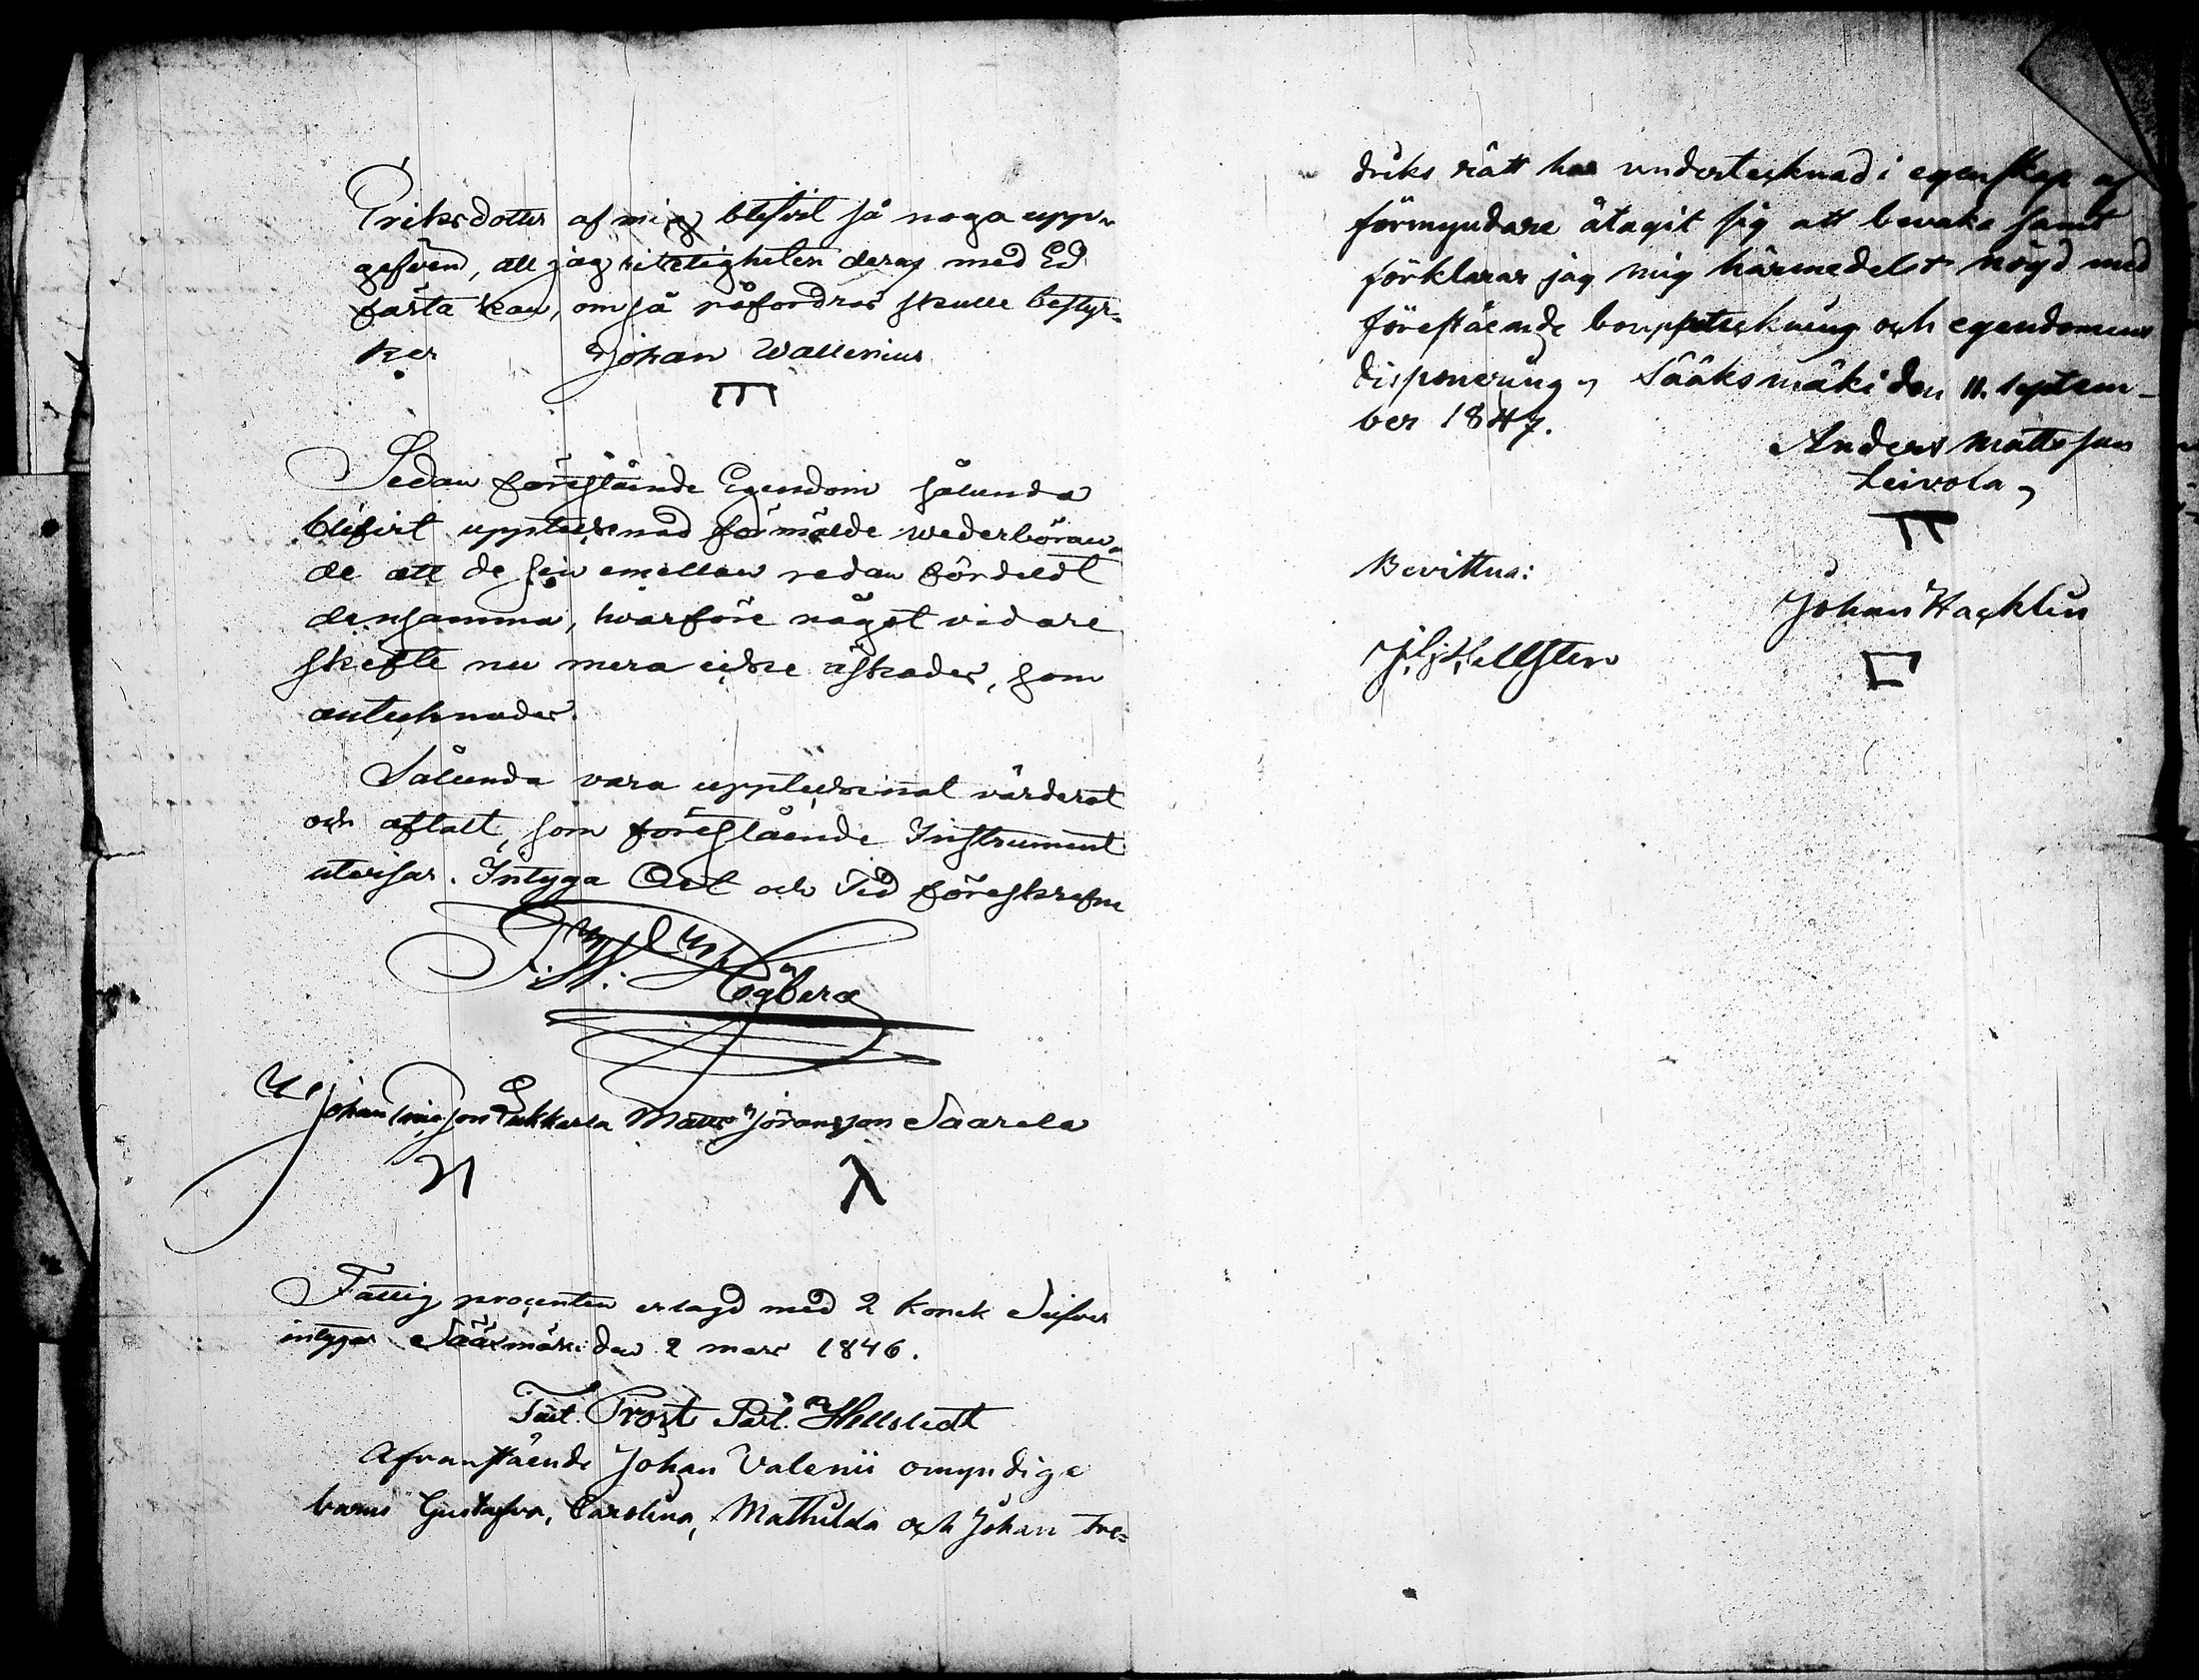 Eriksdotter af mig blifvit så noga upp-
gifven, att jag riktigheten deraf med Ed
fästa kan, om så påfordras skulle bestyr-
ker Johan Wallenius
Sedan föreståënde Egendom sålunda
blifvit upptecknad förmälde wederböran-
de att de sin emellan redan fördeldt
densamma, hvarföre något vidare
skefte nu mera icke äskades, som
antecknades.
Sålunda vara upptecknat värderat
och aftalt, som föreståënde Instrument
utvisar. Intyga Ort och Tid föreskrefne
F. W. Högberg
Johan Sukkarla Matts Jöransson Saarela
Fattig procenten erlagd med 2 Kopek Silfver
intygar Sääxmäki den 2 mars 1846.
Frost Hellstedt
Afvanstående Johan Valenii omyndige
barns Gustafva, Carolina, Mathilda och Johan Fre-
driks rätt har undertecknad i egenskap af
förmyndare åtagit sig att bevaka samt
förklarar jag mig härmedelst nöjd med
föreståënde bouppteckning och egendomens
disponering, Sääksmäki den 11. septem-
ber 1847.
Anders Mattsson
Leivola,
Bevittna:
Johan Hacklin
Hellsten